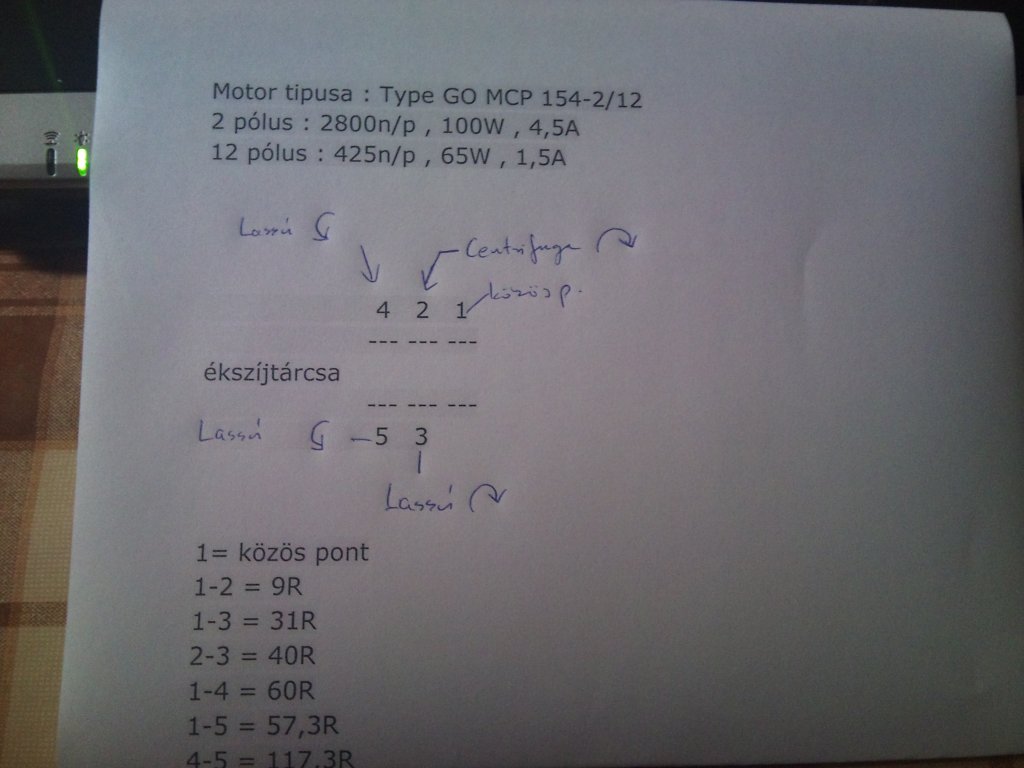 Motor tipusa : Type GO MCP 154-2/12
2 pólus : 2800n/p , 100W , 4,5A
12 pólus : 425n/p , 65W , 1,5A
Lassú
Centrifuga
közös p.
4 2 1
--- --- ---
ékszíjtárcsa
--- --- ---
Lassú
5 3
Lassú
1= közös pont
1-2 = 9R
1-3 = 31R
2-3 = 40R
1-4 = 60R
1-5 = 57,3R
4-5 = 117,3R